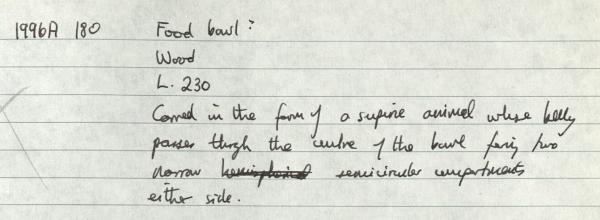 1996A 180 Food bowl?
Wood
L. 230
Carved in the form of a supine animal whose belly
passes through the centre of the bowl forming two
narrow hemispherical semicircular compartments
either side.